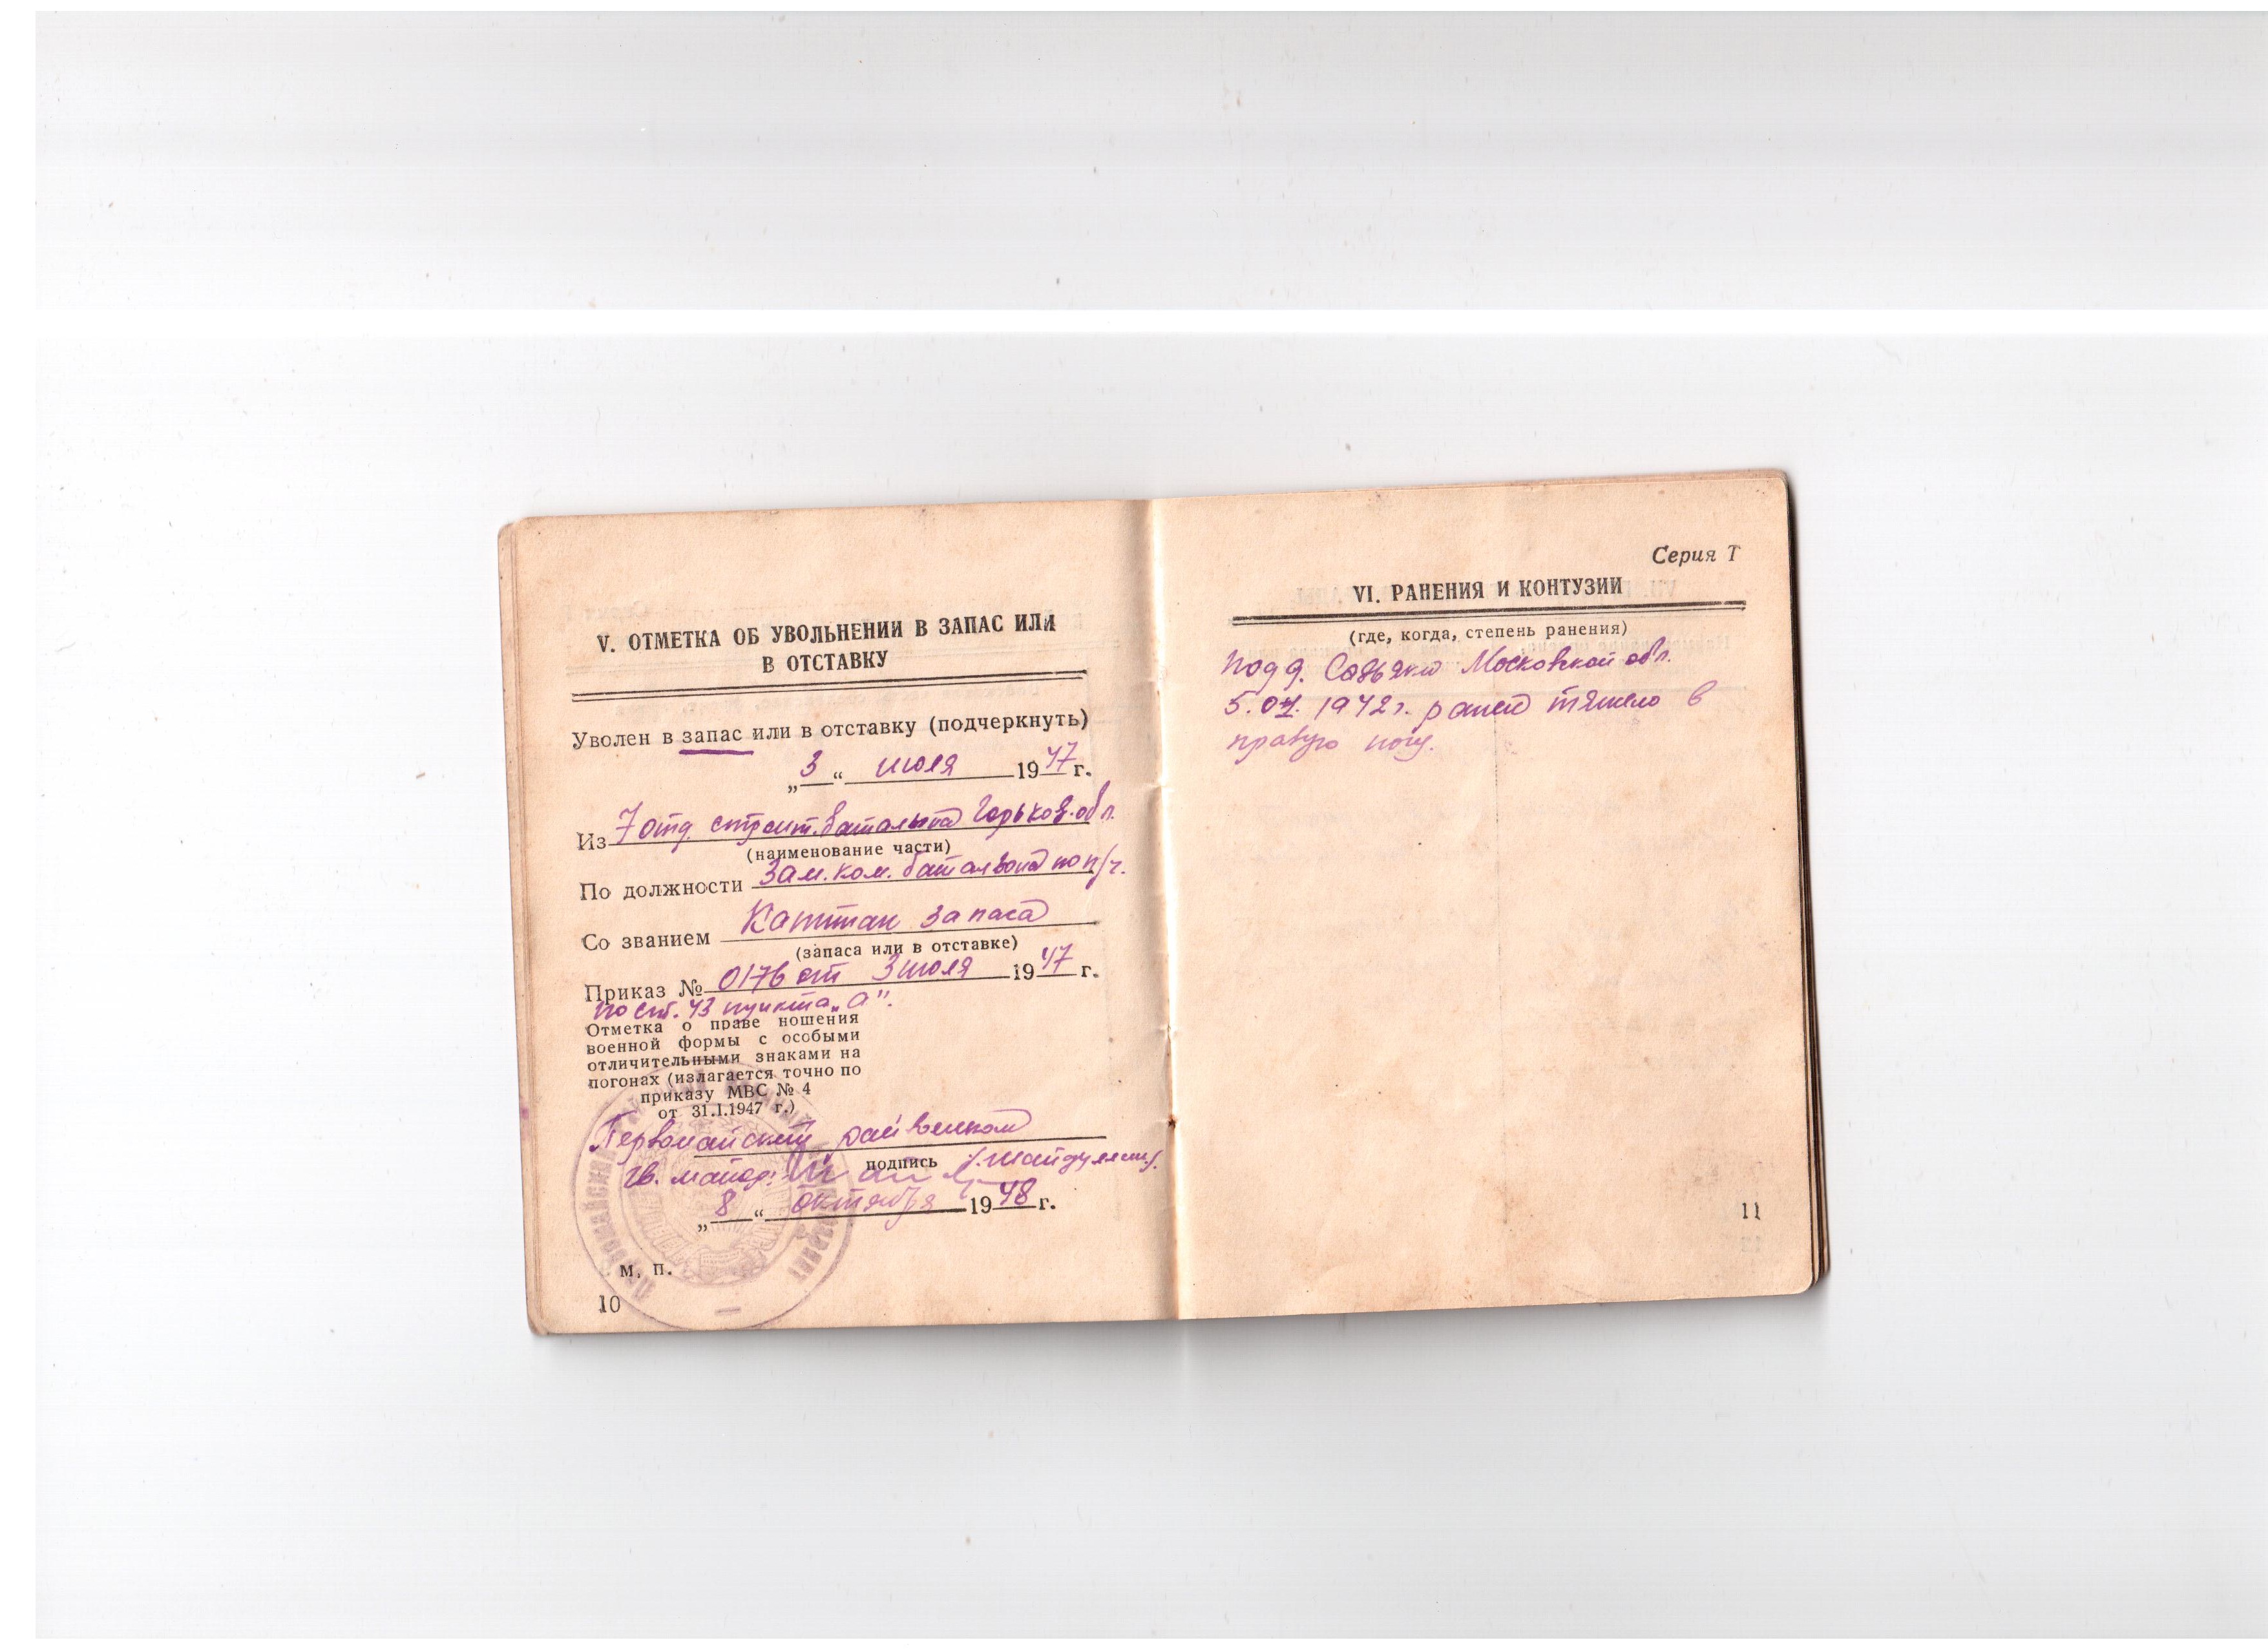 V. ОТМЕТКА ОБ УВОЛЬНЕНИИ В ЗАПАС ИЛИ
В ОТСТАВКУ
Уволен в запас или в отставку (подчеркнуть)
„3“ июля 1947 г.
Из 7 отд. строит. батальона Горьков. обл.
(наименование части)
По должности Зам. ком. батальона по п/ч.
Со званием Капитан запаса
(запаса или в отставке)
Приказ № 0176 от 3 июля 1947 г.
по ст. 43 пункта „а“.
Отметка о праве ношения
военной формы с особыми
отличительными знаками на
погонах (излагается точно по
приказу МВС № 4
от 31.I.1947 г.)
Первомайский райвоенком
гв. майор:
подпись
„8“ октября 1948 г.
М. П.
10
Серия Т
VI. РАНЕНИЯ И КОНТУЗИИ
(где, когда, степень ранения)
под д. Московской обл.
5. 1942 г. ранен тяжело в
правую ногу.
11